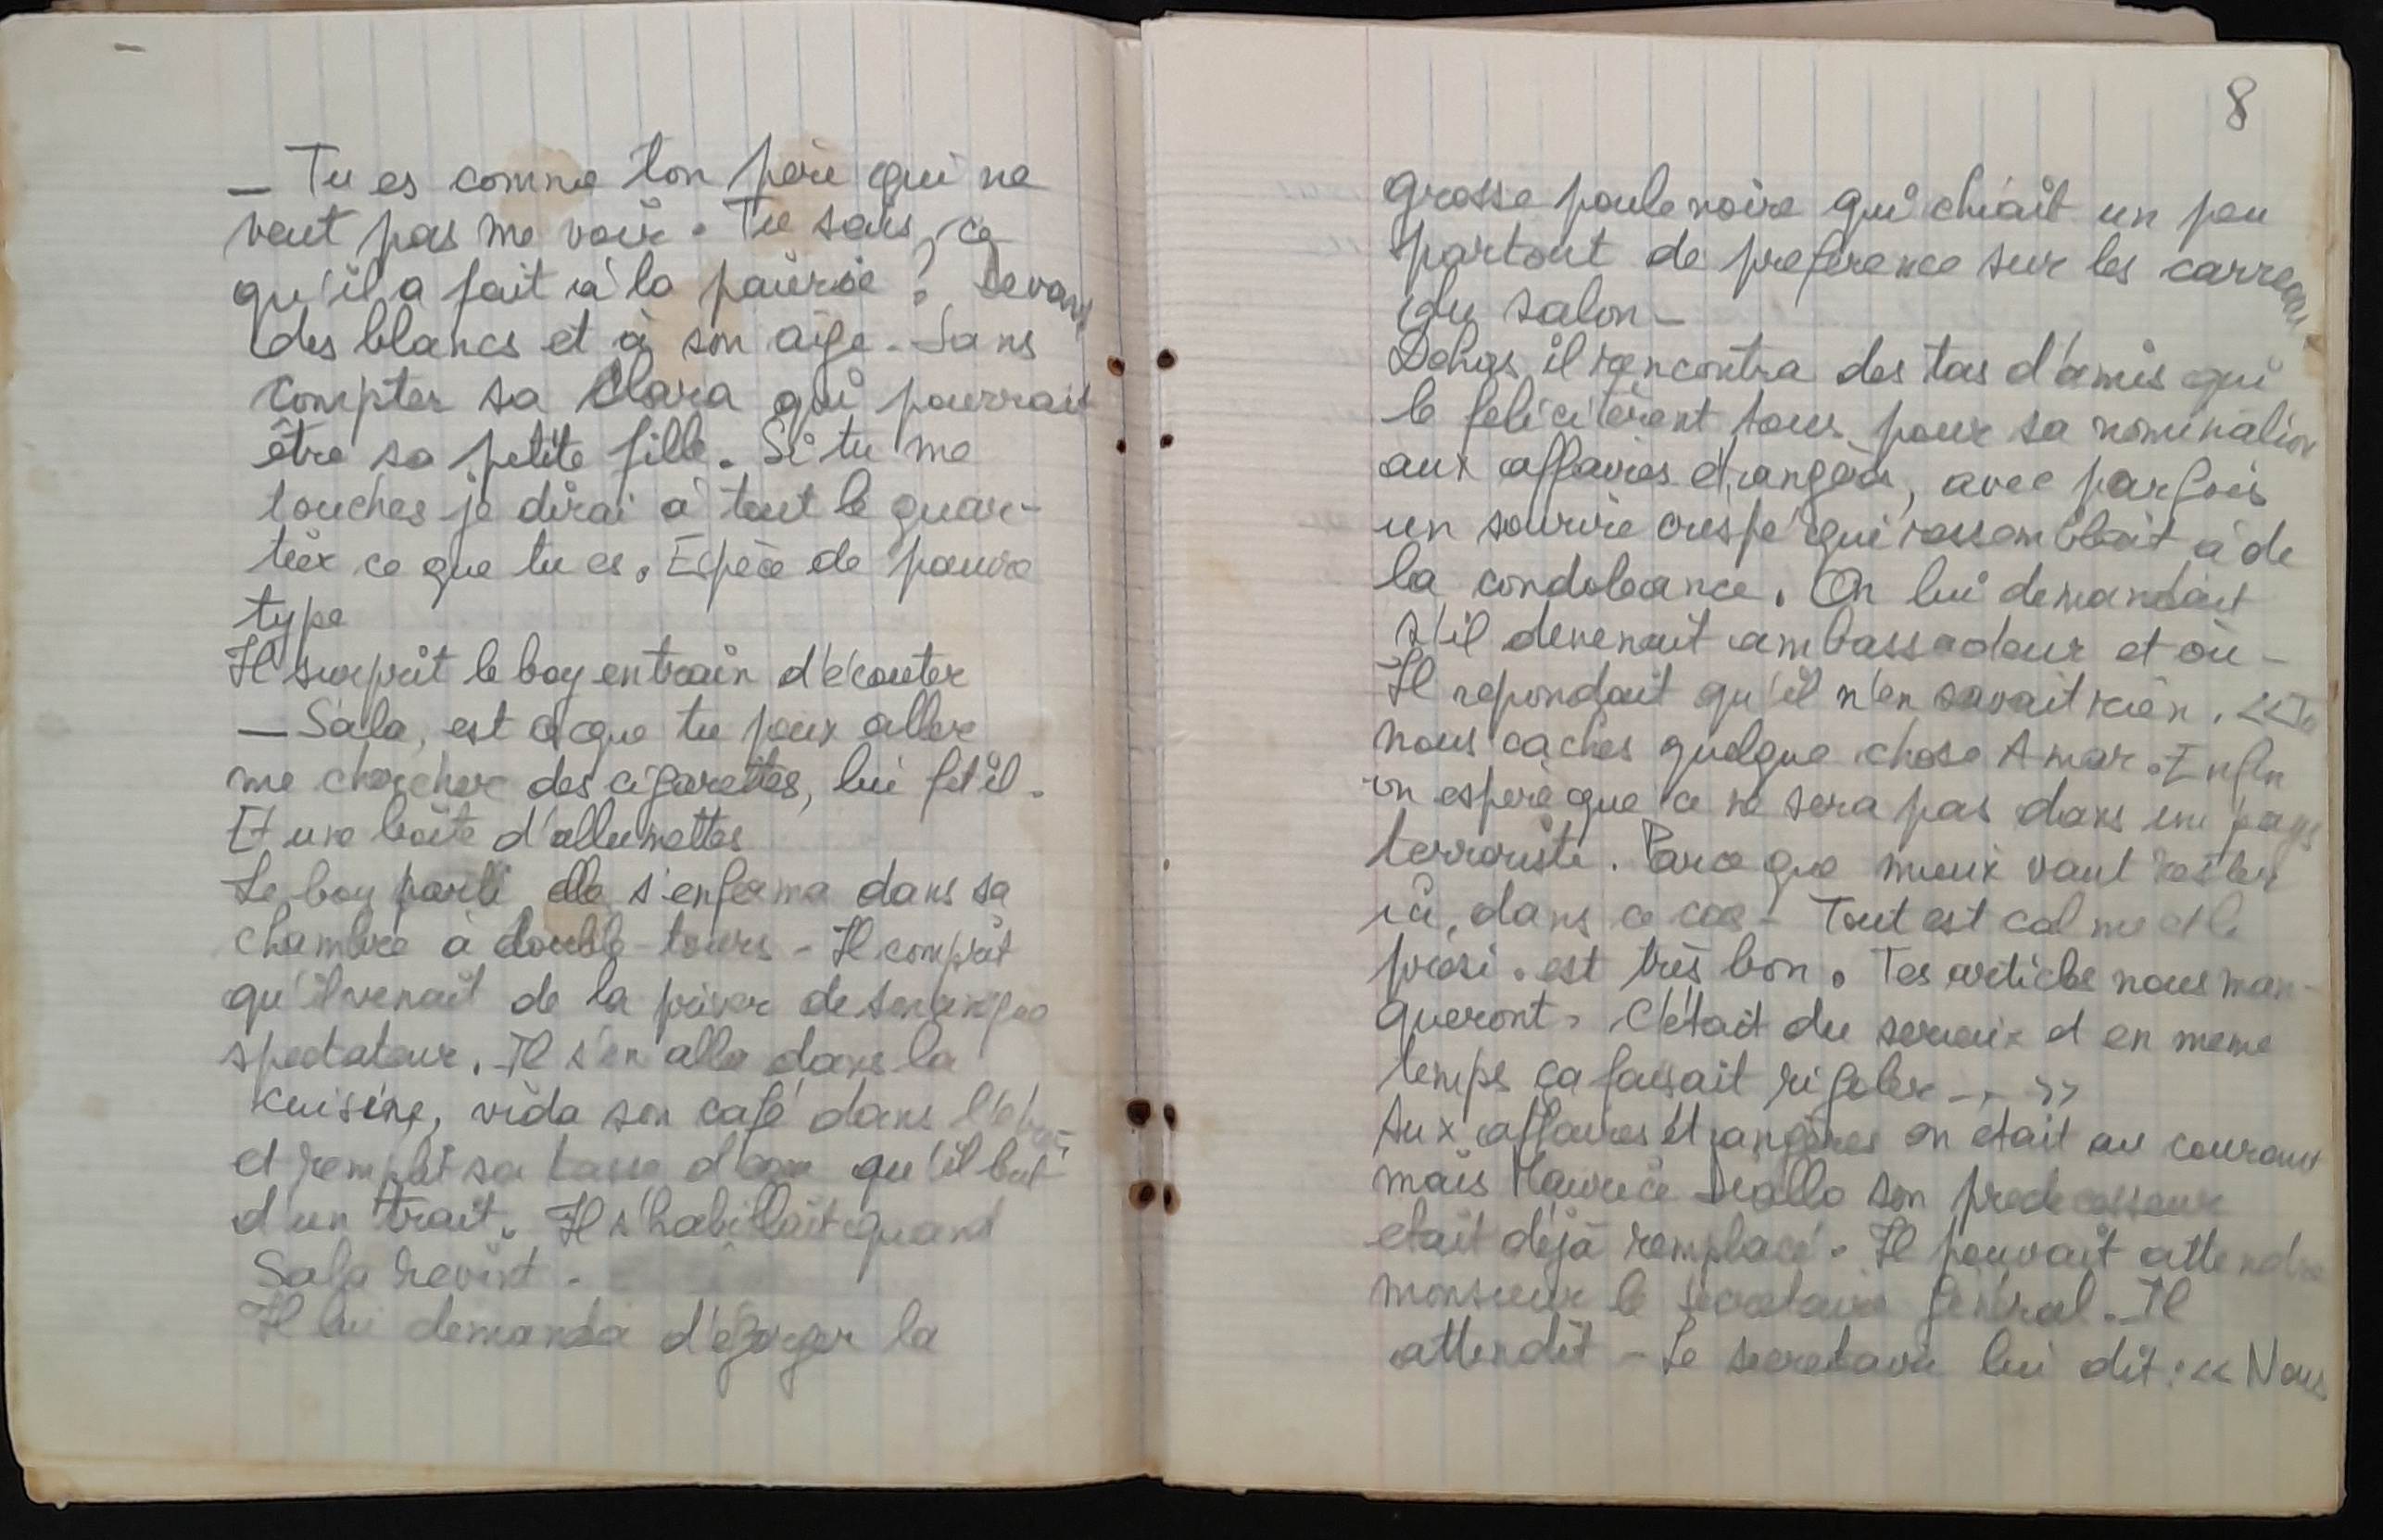 — Tu es comme ton père qui ne
veut pas me voir. Tu sais, ce
qu'il a fait à la mairie ? Devant
des blancs et à son âge. Sans
compter sa Clara qui pourrait
être sa petite fille. Si tu me
touches je dirai à tout le quar-
tier ce que tu es. Espèce de pauvre
type
Il surprit le boy entrain d'écouter
— Sala, est ce que tu peux aller
me chercher des cigarettes, lui fit il.
Et une boîte d'allumettes
Le boy parti elle s'enferma dans sa
chambre à double-tours - Il comprit
qu'il venait de la priver de son unique
spectateur. Il s'en alla dans la
cuisine, vida son café dans l'évier
et remplit sa tasse d'eau qu'il but
d'un trait. Il s'habillait quand
Sala revint.
Il lui demanda d'égorger la
8
grosse poule noire qui chiait un peu
partout de preference sur les carreaux
du salon -
Dehors il rencontra des tas d'amis qui
le felicitèrent tous pour sa nomination
aux affaires étrangères, avec parfois
un sourire crispé qui ressemblait à de
la condoleance. On lui demandait
s'il devenait ambassadeur et où -
Il repondait qu'il n'en savait rien. <<Tu
nous caches quelque chose Amar. Enfin
on espère que ce ne sera pas dans un pays
terroriste. Parce que mieux vaut rester
ici, dans ce cas - Tout est calme et le
presi. est très bon. Tes articles nous man-
queront. C'était du serieux et en meme
temps ça faisait rigoler - . >>
Aux affaires étrangères on etait au courant
mais Maurice Diallo son predecesseur
etait déjà remplacé. Il pouvait attendre
monsieur le secretaire général. Il
attendit - Le secretaire lui dit : << Nous